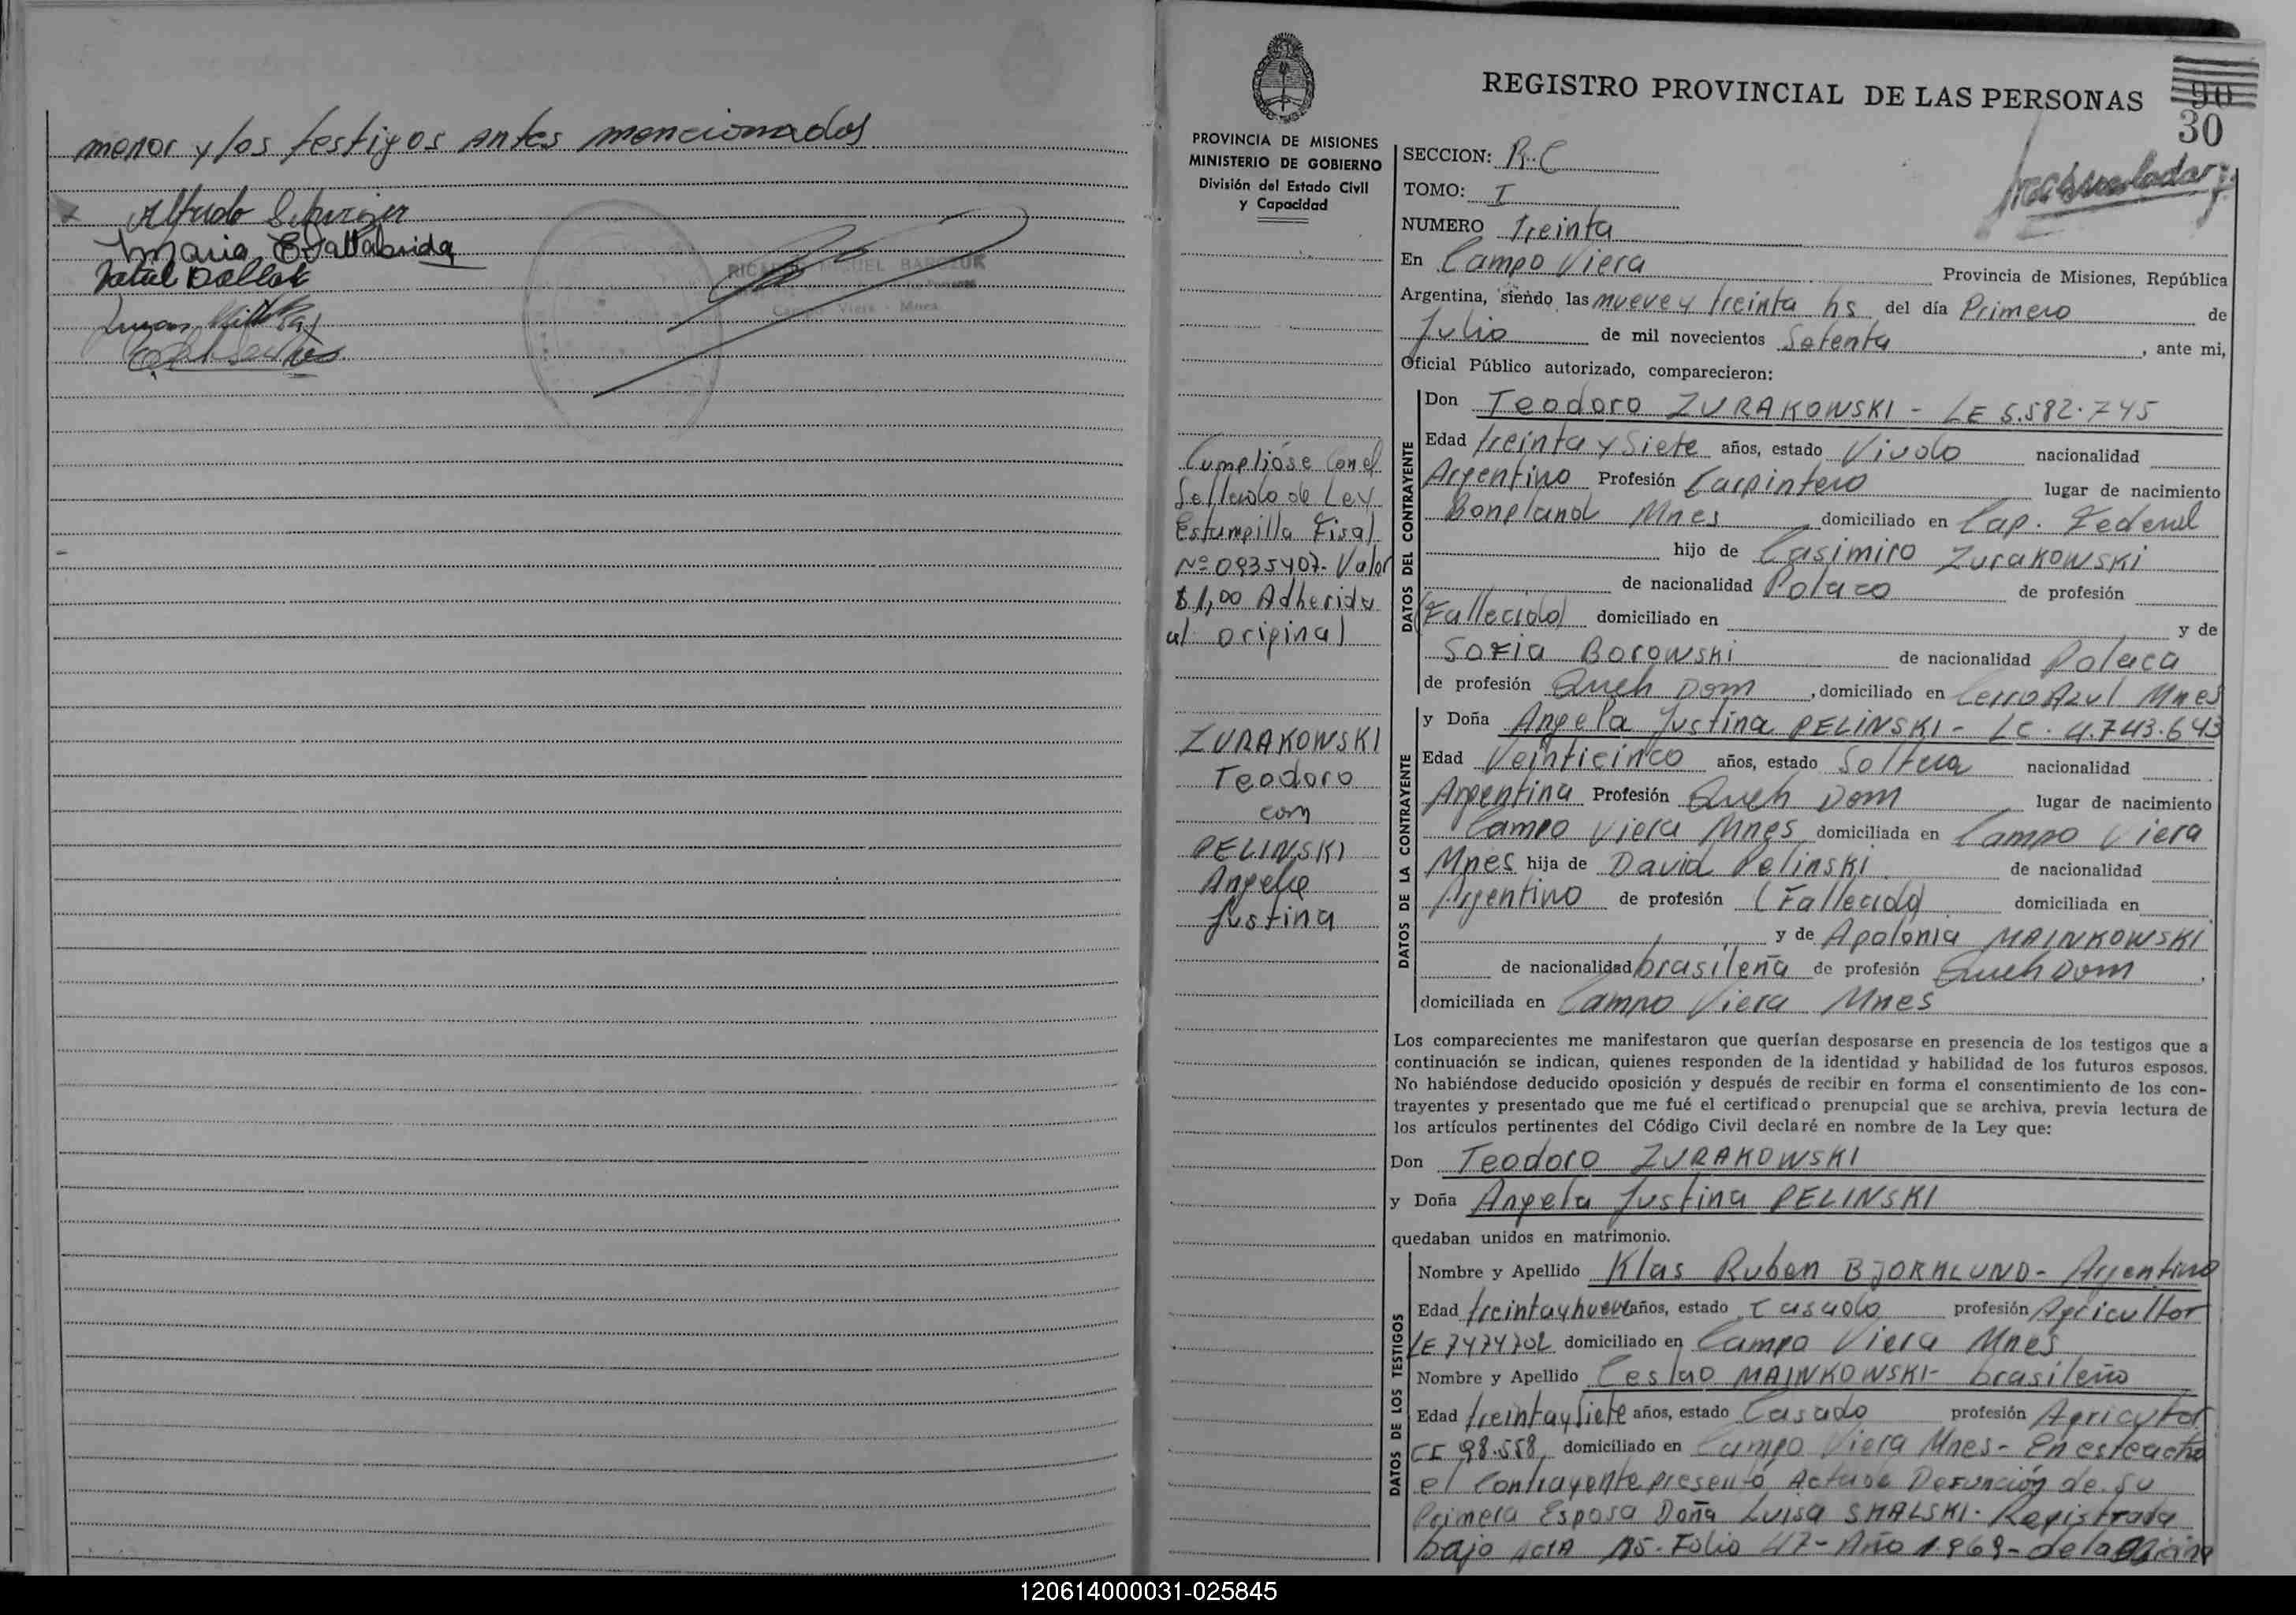 menor y los testigos antes mencionados
Alfredo
Maria E Dallabrida
RICARDO MIGUEL BARCZUK
Campo Viera - Mnes
REGISTRO PROVINCIAL DE LAS PERSONAS
30
PROVINCIA DE MISIONES
MINISTERIO DE GOBIERNO
División del Estado Civil
y Capacidad
SECCION: R.C
TOMO: I
NUMERO Treinta
En Campo Viera Provincia de Misiones, República
Argentina, siendo las nueve y treinta hs del día Primero de
Julio de mil novecientos Setenta, ante mi,
Oficial Público autorizado, comparecieron:
DATOS DEL CONTRAYENTE
Don Teodoro ZURAKOWSKI - LE 5.582.745
Edad treinta y Siete años, estado Viudo nacionalidad
Argentino Profesión Carpintero lugar de nacimiento
Bonpland Mnes domiciliado en Cap. Federal
hijo de Casimiro Zurakowski
de nacionalidad Polaco de profesión
(Fallecido) domiciliado en y de
Sofia Borowski de nacionalidad Polaca
de profesión Queh Dom, domiciliado en Cerro Azul Mnes
Cumplióse Con el
Sellado de Ley
Estampilla Fisal
Nº 0935407- Valor
$ 1,00 Adherida
al original
DATOS DE LA CONTRAYENTE
y Doña Angela Justina PELINSKI - LC. 4.743.643
Edad Veinticinco años, estado Soltera nacionalidad
Argentina Profesión Queh Dom lugar de nacimiento
Campo Viera Mnes domiciliada en Campo Viera
Mnes hija de David Pelinski de nacionalidad
Argentino de profesión (Fallecido) domiciliada en
y de Apolonia MAINKOWSKI
de nacionalidad brasileña de profesión Queh Dom,
domiciliada en Campo Viera Mnes
ZURAKOWSKI
Teodoro
con
PELINSKI
Angela
Justina
Los comparecientes me manifestaron que querían desposarse en presencia de los testigos que a
continuación se indican, quienes responden de la identidad y habilidad de los futuros esposos.
No habiéndose deducido oposición y después de recibir en forma el consentimiento de los con-
trayentes y presentado que me fué el certificado prenupcial que se archiva, previa lectura de
los artículos pertinentes del Código Civil declaré en nombre de la Ley que:
Don Teodoro ZURAKOWSKI
y Doña Angela Justina PELINSKI
quedaban unidos en matrimonio.
DATOS DE LOS TESTIGOS
Nombre y Apellido Klas Ruben BJORKLUND - Argentino
Edad treinta y nueve años, estado Casado profesión Agricultor
LE 7474702 domiciliado en Campo Viera Mnes
Nombre y Apellido Ceslao MAINKOWSKI - brasileño
Edad treinta y Siete años, estado Casado profesión Agricultor
CI 98.558, domiciliado en Campo Viera Mnes - En este acto
el Contrayente presentó Acta de Defunción de Su
Primera Esposa Doña Luisa SKALSKI. Registrada
bajo ACTA 15. Folio 47 - Año 1.969 - de la Oficina
120614000031-025845